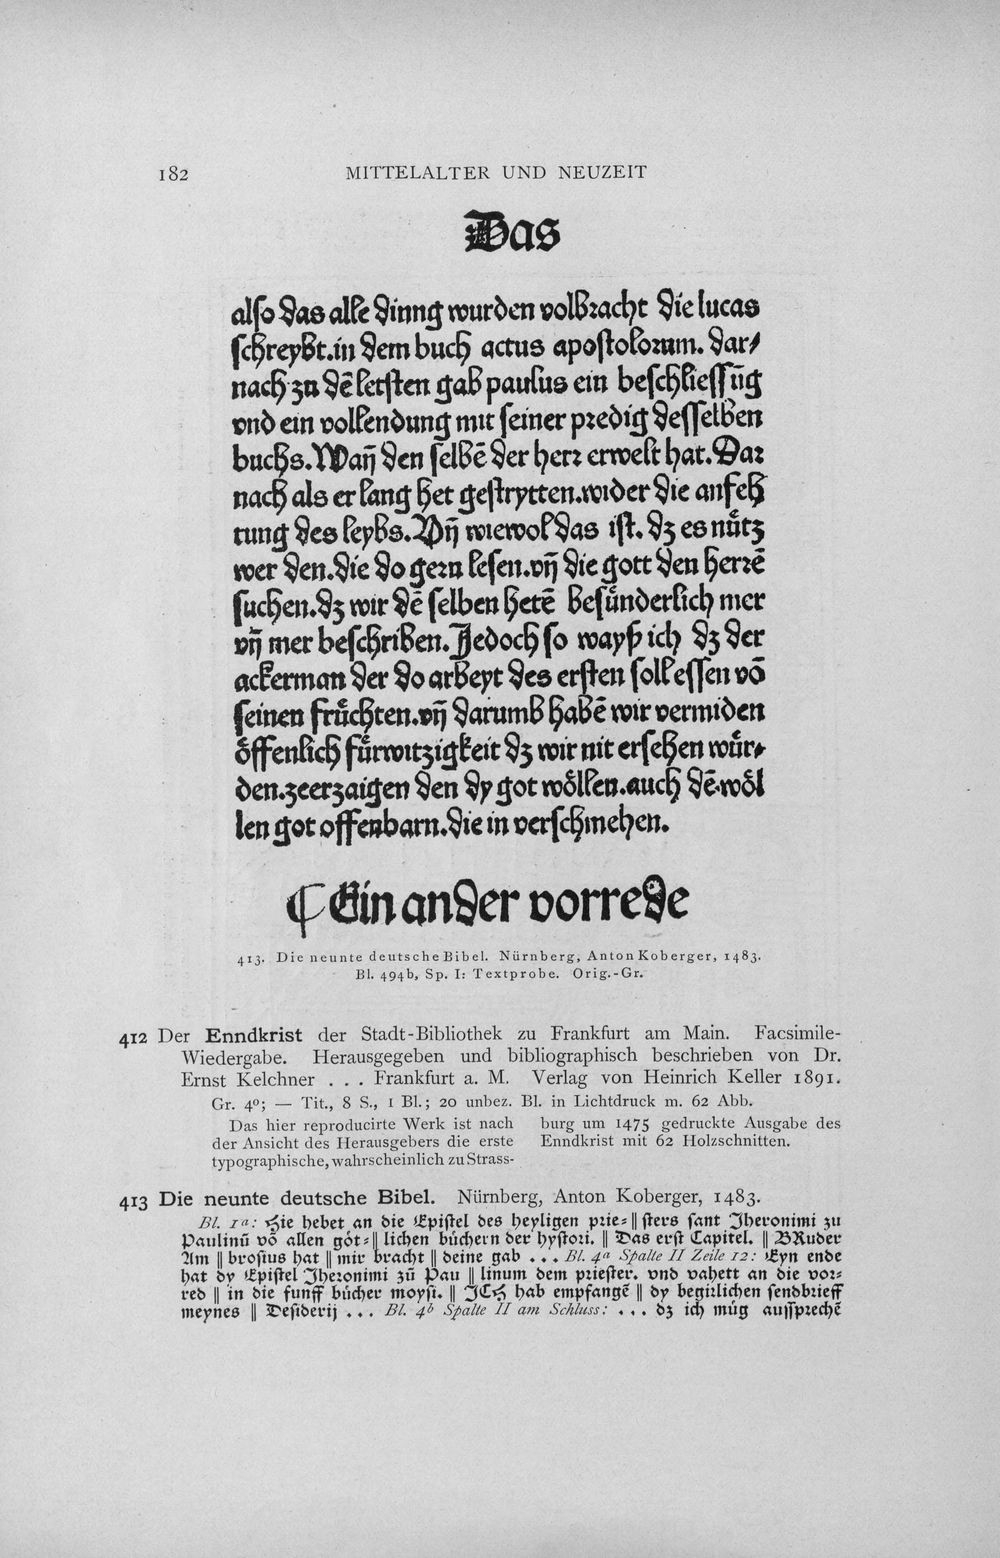 182
MITTELALTER UND NEUZEIT
Das
also das alle dinng wurden volbracht die lucas
schreybt.in dem buch actus apostolorum. dar/
nach zu dē letsten gab paulus ein beschliessūg
vnd ein vollendung mit seiner predig desselben
buchs. Wañ den selbē der herr erwelt hat. Dar
nach als er lang het gestrytten.wider die anfeh
tung des leybs. Vñ wiewol das ist. dz es nůtz
wer den.die do gern lesen.vñ die gott den herrē
suchen.dz wir dē selben herē besůnderlich mer
vñ mer beschriben. Jedoch so wayß ich dz der
ackerman der do arbeyt des ersten soll essen vō
seinen frůchten.vñ darumb habē wir vermiden
offenlich fůrwitzigkeit dz wir nit ersehen wůr/
den.zeerzaigen den dy got wöllen.auch dē.wöl
len got offenbarn.die in verschmehen.
¶ Ein ander vorrede
413. Die neunte deutsche Bibel. Nürnberg, Anton Koberger, 1483.
Bl. 494b, Sp. I: Textprobe. Orig.-Gr.
412 Der Enndkrist der Stadt-Bibliothek zu Frankfurt am Main. Facsimile-
Wiedergabe. Herausgegeben und bibliographisch beschrieben von Dr.
Ernst Kelchner . . . Frankfurt a. M. Verlag von Heinrich Keller 1891.
Gr. 4⁰; — Tit., 8 S., 1 Bl.; 20 unbez. Bl. in Lichtdruck m. 62 Abb.
Das hier reproducirte Werk ist nach
der Ansicht des Herausgebers die erste
typographische, wahrscheinlich zu Strass-
burg um 1475 gedruckte Ausgabe des
Enndkrist mit 62 Holzschnitten.
413 Die neunte deutsche Bibel. Nürnberg, Anton Koberger, 1483.
Bl. 1a: Hie hebet an die Epistel des heyligen prie=‖sters sant Jheronimi zu
Paulinū vō allen göt=‖lichen büchern der hystori. ‖ Das erst Capitel. ‖ BRuder
Am ‖ brosius hat ‖ mir bracht ‖ deine gab . . . Bl. 4a Spalte II Zeile 12: Eyn ende
hat dy Epistel Jheronimi zů Pau ‖ linum dem priester. vnd vahett an die vor=
red ‖ in die funff bücher moysi. ‖ JCH hab empfangē ‖ dy begirlichen sendbrieff
meynes ‖ Desiderij . . . Bl. 4b Spalte II am Schluss: . . . dz ich můg aussprechē